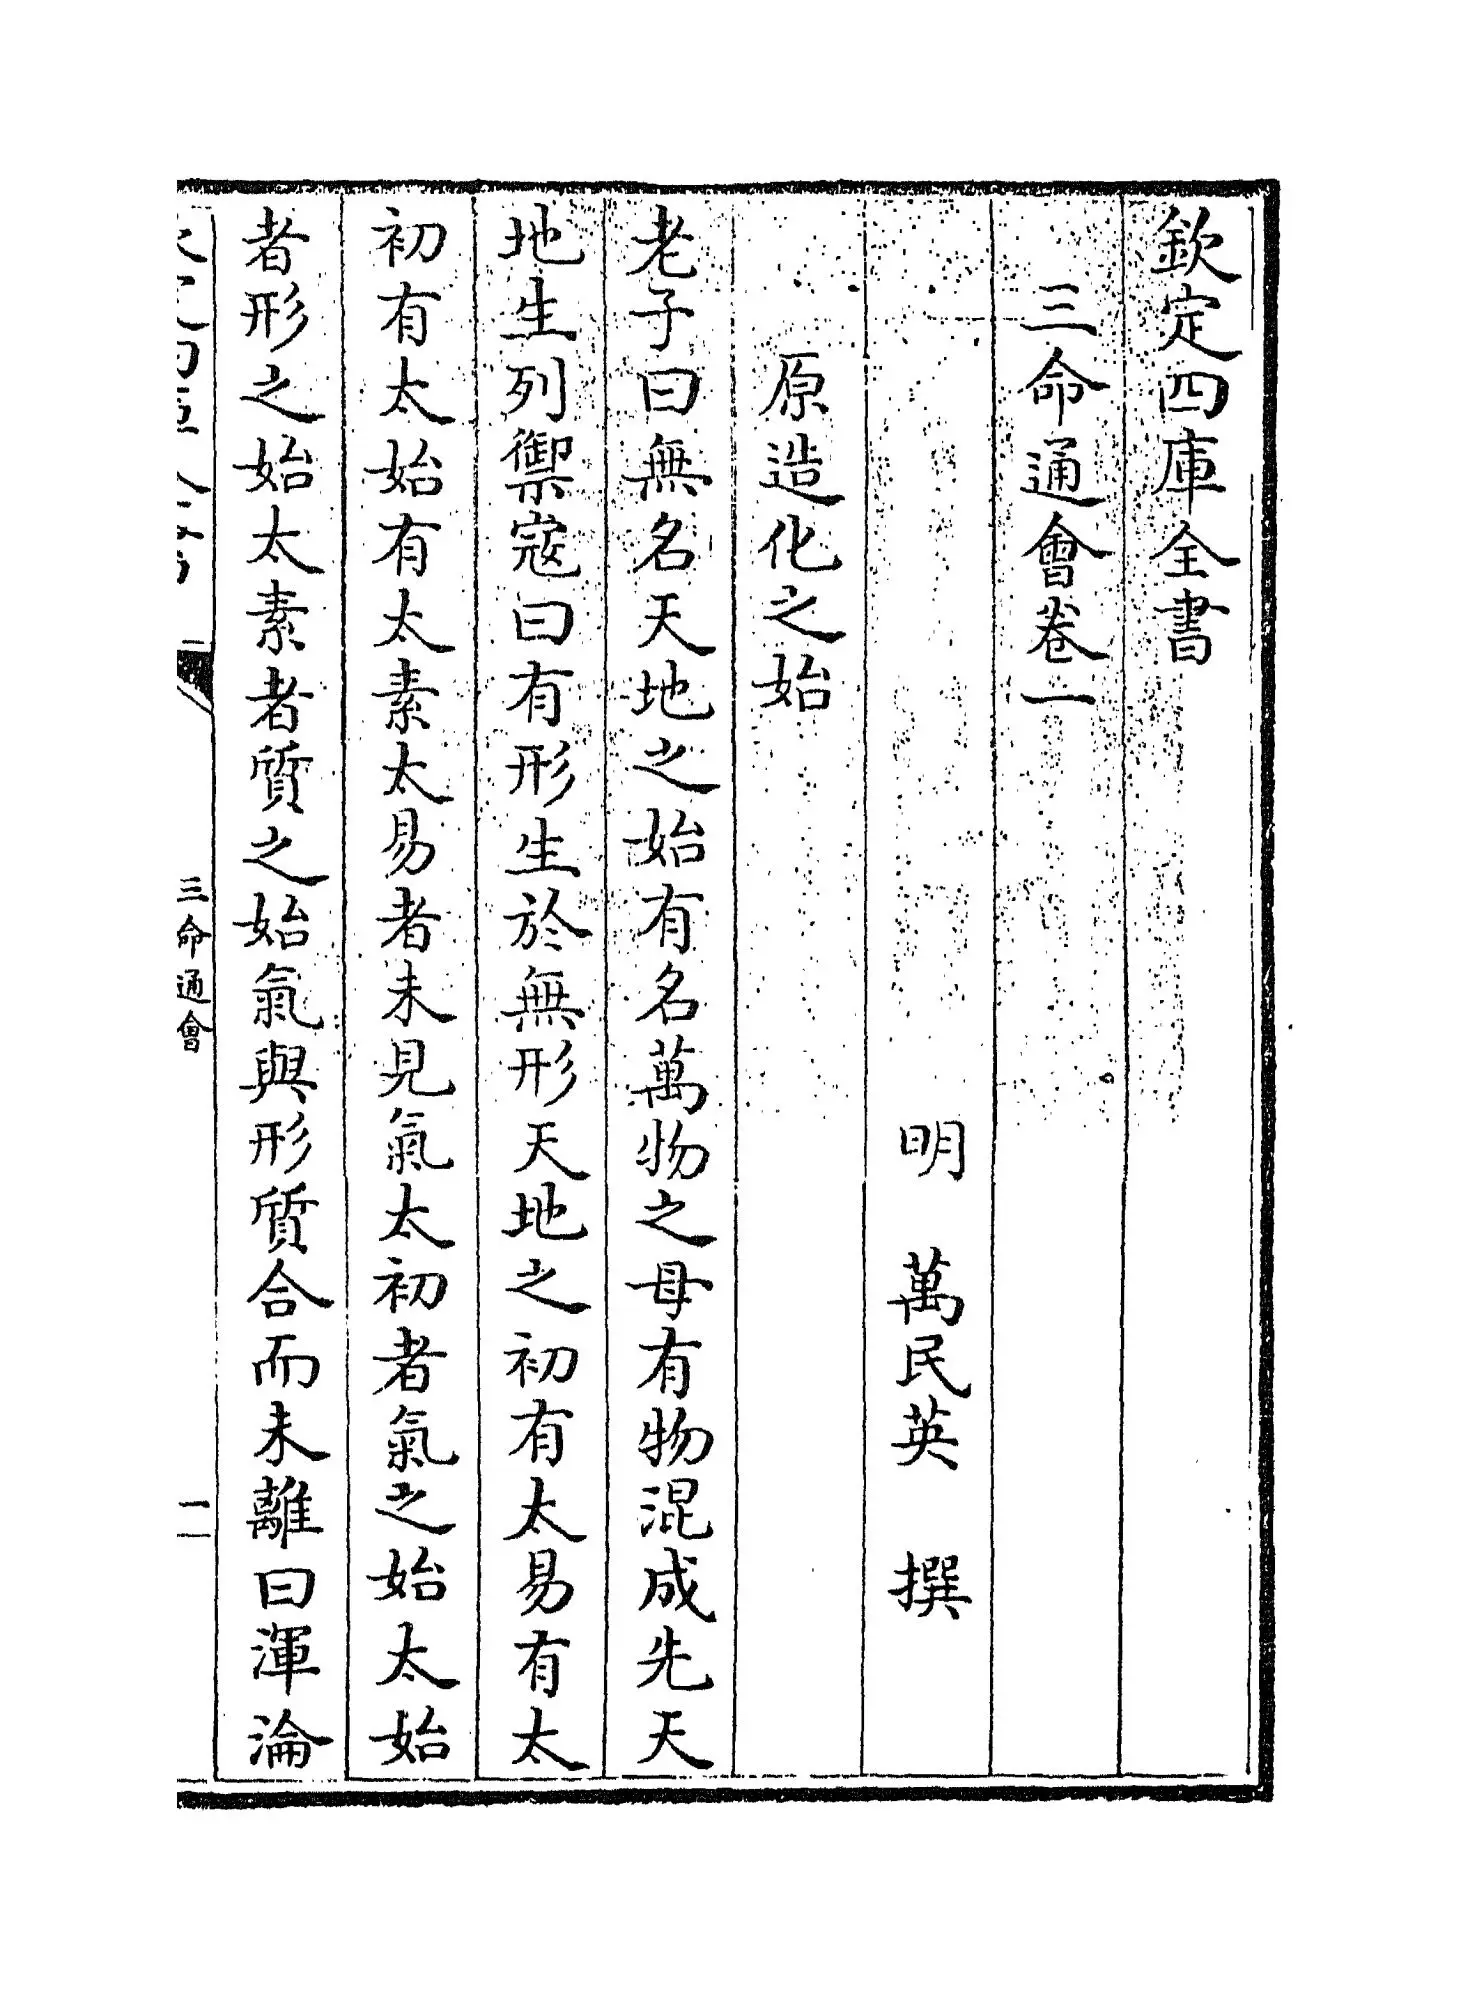 欽定四庫全書
三命通會卷一
明　萬民英　撰
原造化之始
老子曰無名天地之始有名萬物之母有物混成先天
地生列禦寇曰有形生於無形天地之初有太易有太
初有太始有太素太易者未見氣太初者氣之始太始
者形之始太素者質之始氣與形質合而未離曰渾淪
三命通會
一